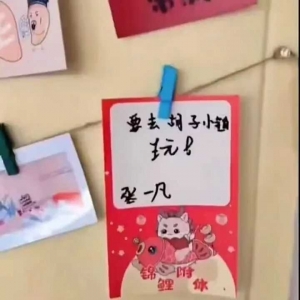 要去胡子小镇
玩!
一凡
锦 附
鲤 体